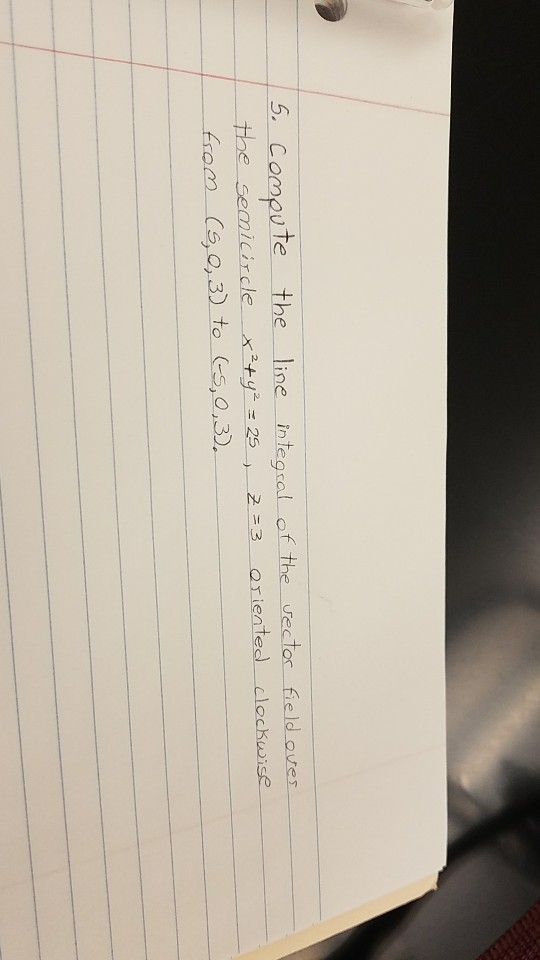 5. Compute the line integral of the vector field over
the semicircle x²+y² = 25, z=3 oriented clockwise
from (5,0,3) to (-5,0,3).